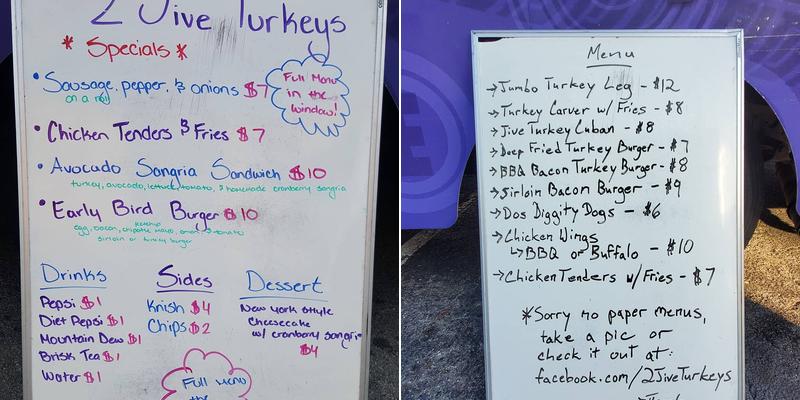 2 Jive Turkeys
* Specials *
• Sausage, pepper, & onions $7
on a roll
Full Menu
in the
window!
• Chicken Tenders & Fries $7
• Avocado Sangria Sandwich $10
turkey, avocado, lettuce, tomato, & homemade cranberry sangria
• Early Bird Burger $10
ketchup
egg, bacon, chipotle mayo, onion, & tomato
sirloin or turkey burger
Drinks
Pepsi $1
Diet Pepsi $1
Mountain Dew $1
Brisk Tea $1
Water $1
Sides
Knish $4
Chips $2
Dessert
New York Style
Cheesecake
w/ cranberry sangria
$4
Full Menu
the
Menu
→ Jumbo Turkey Leg - $12
→ Turkey Carver w/ Fries - $8
→ Jive Turkey Cuban - $8
→ Deep Fried Turkey Burger - $7
→ BBQ Bacon Turkey Burger - $8
→ Sirloin Bacon Burger - $9
→ Dos Diggity Dogs - $6
→ Chicken Wings
↳ BBQ or Buffalo - $10
→ Chicken Tenders w/ Fries - $7
* Sorry no paper menus,
take a pic or
check it out at:
facebook.com/2JiveTurkeys